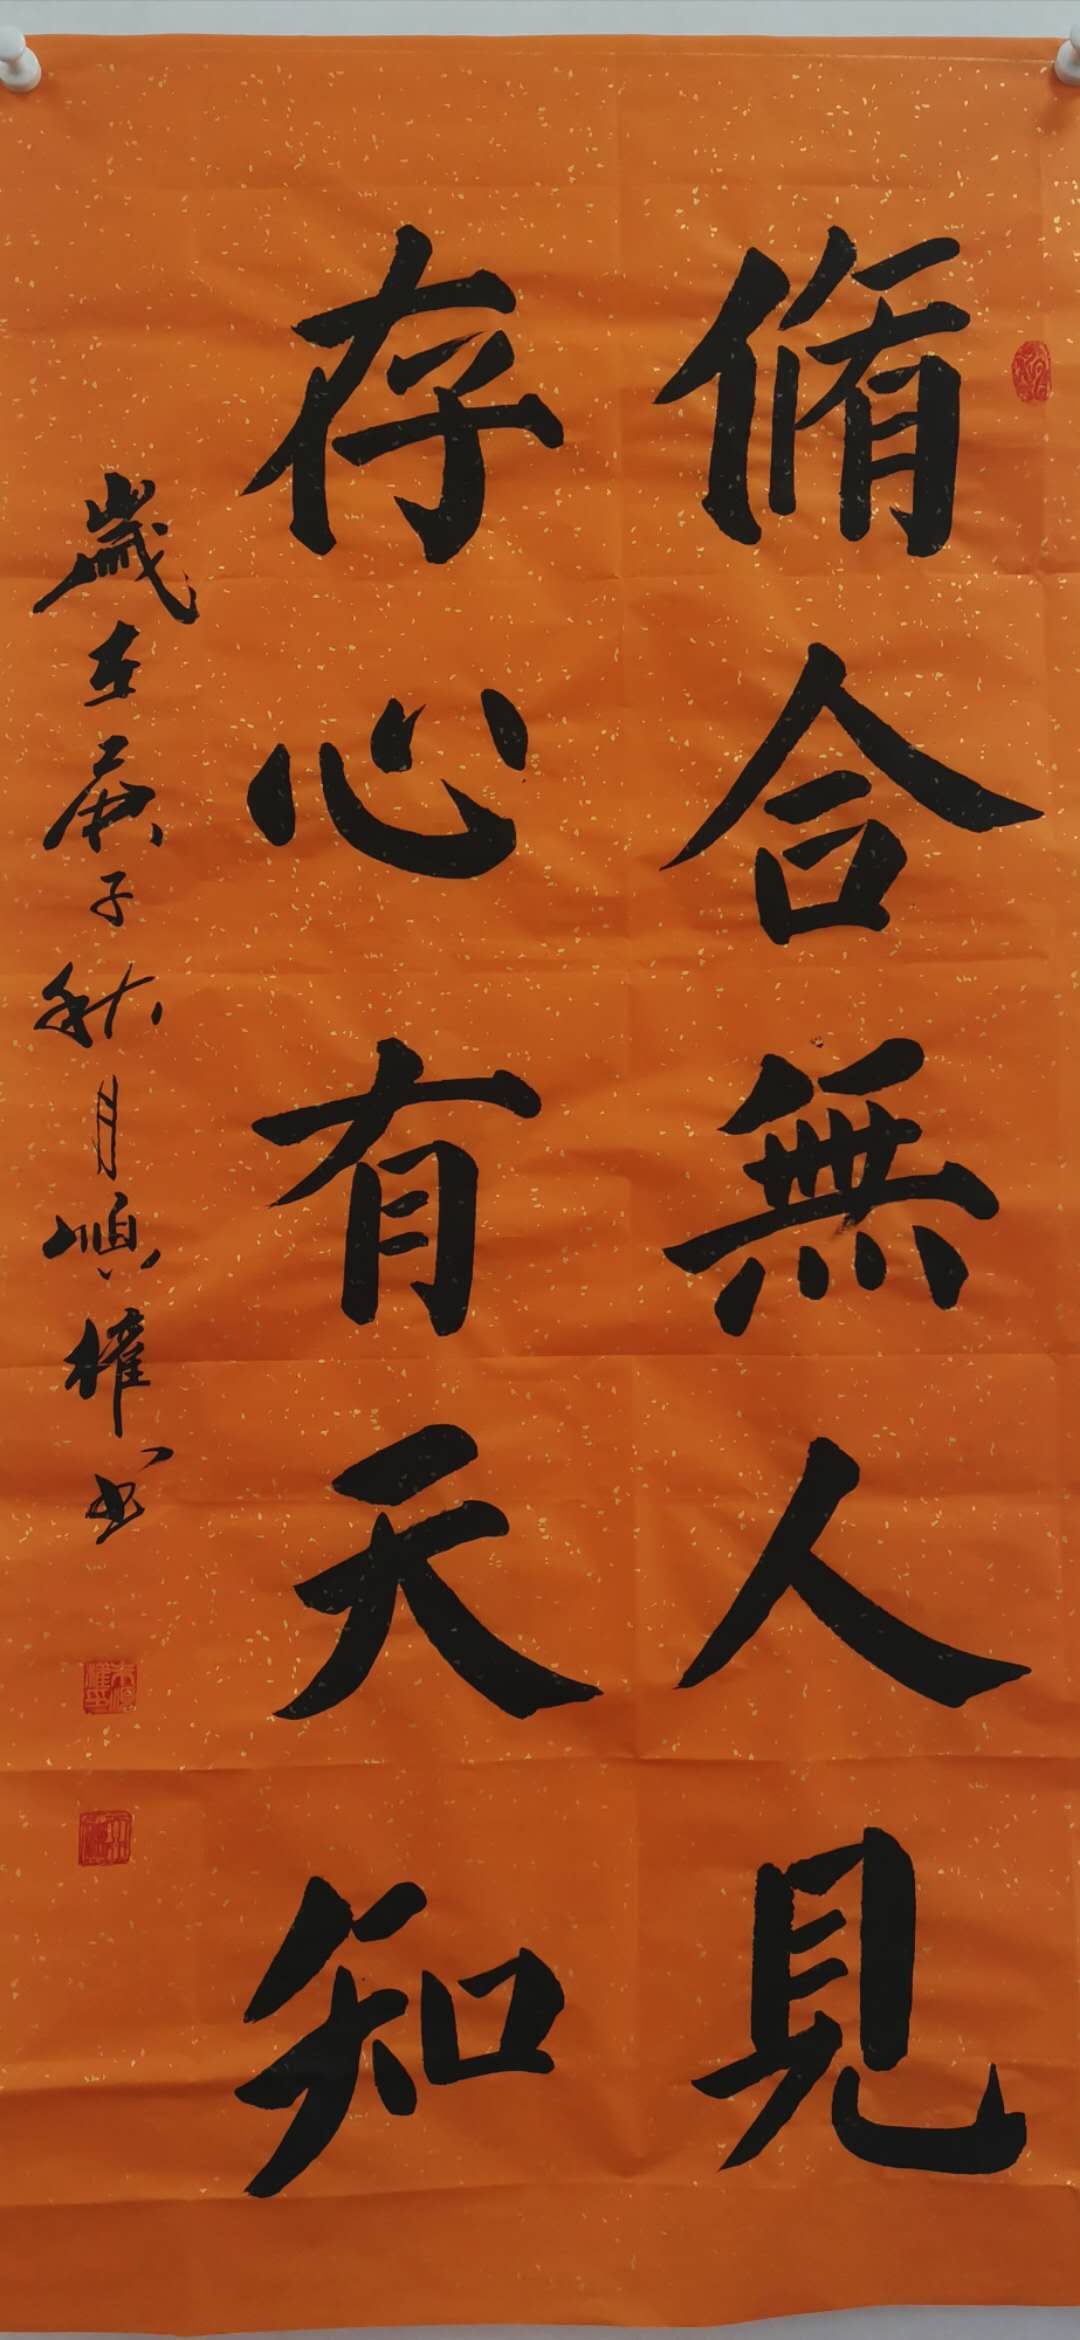 脩合無人見
存心有天知
歲在庚子秋月順權書